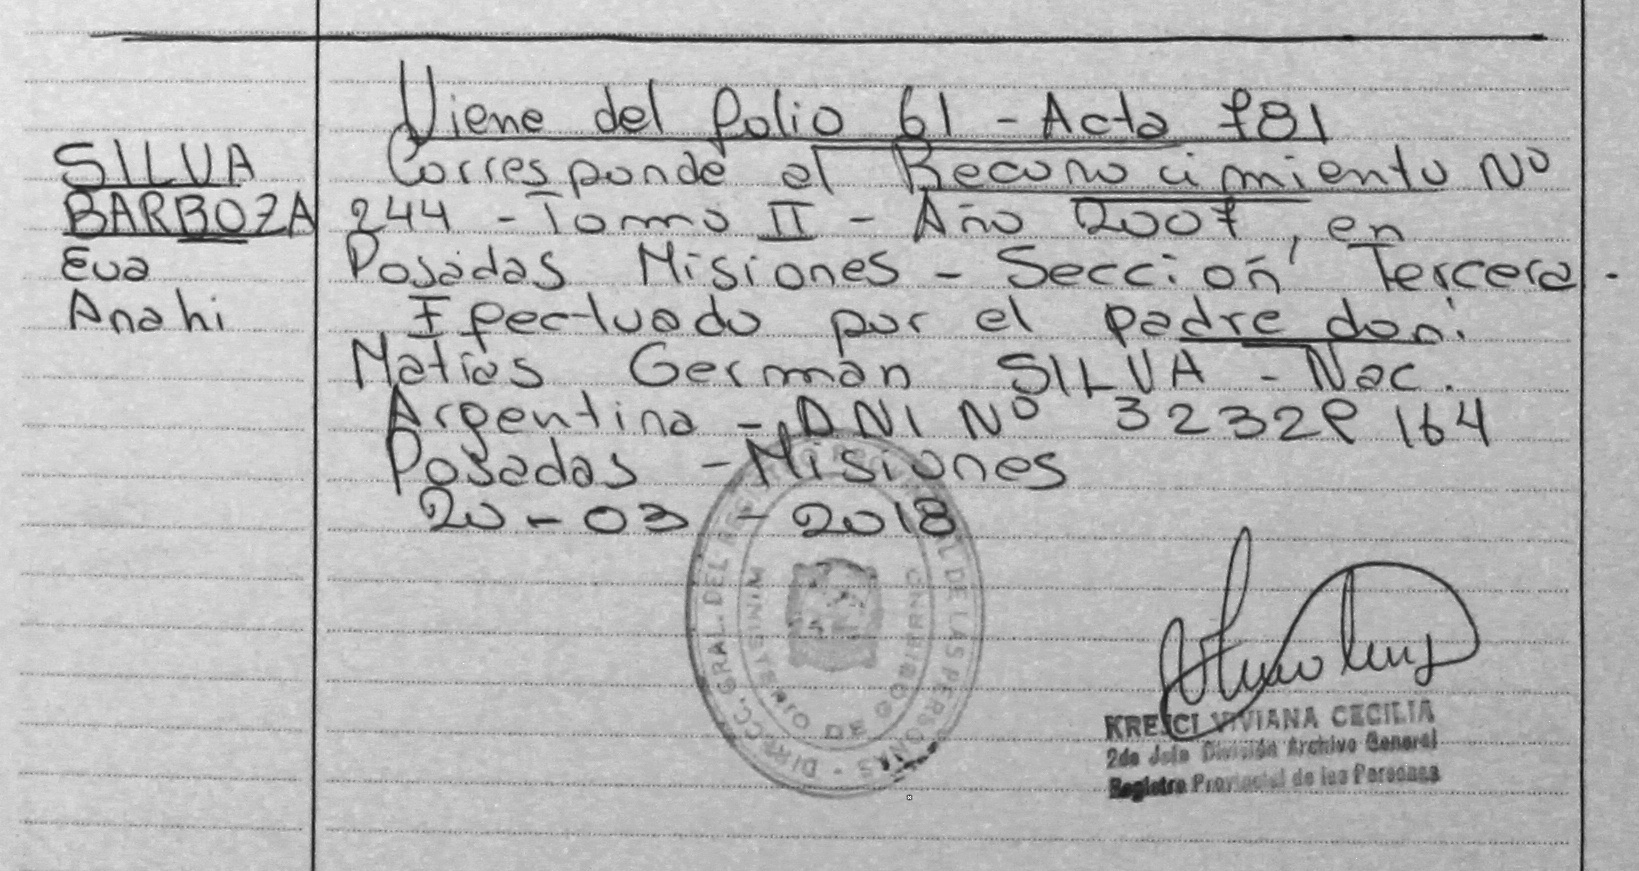 Viene del folio 61 - Acta 781
SILVA
BARBOZA
Eva
Anahi
Corresponde al Reconocimiento Nº
244 - Tomo II - Año 2007, en
Posadas Misiones - Sección Tercera.
Efectuado por el padre don:
Matías German SILVA - Nac.
Argentina - DNI Nº 32329164
Posadas - Misiones
20-03-2018
DIRECC. GRAL. DEL REGISTRO PROVINCIAL DE LAS PERSONAS -
MINISTERIO DE GOBIERNO
KREJCI VIVIANA CECILIA
2do Jefe División Archivo General
Registro Provincial de las Personas